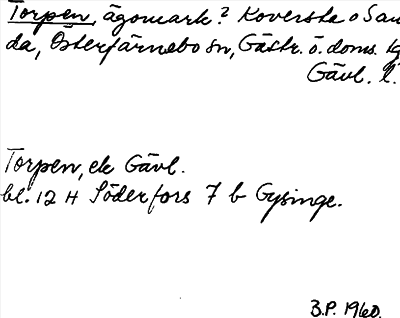 Torpen, ägomark? Koverste o San
da, Österfärnebo sn, Gästr. ö. doms. tg
Gävl. l.
Torpen, ek Gävl.
bl. 12 H Söderfors 7 b Gysinge.
B.P. 1960.